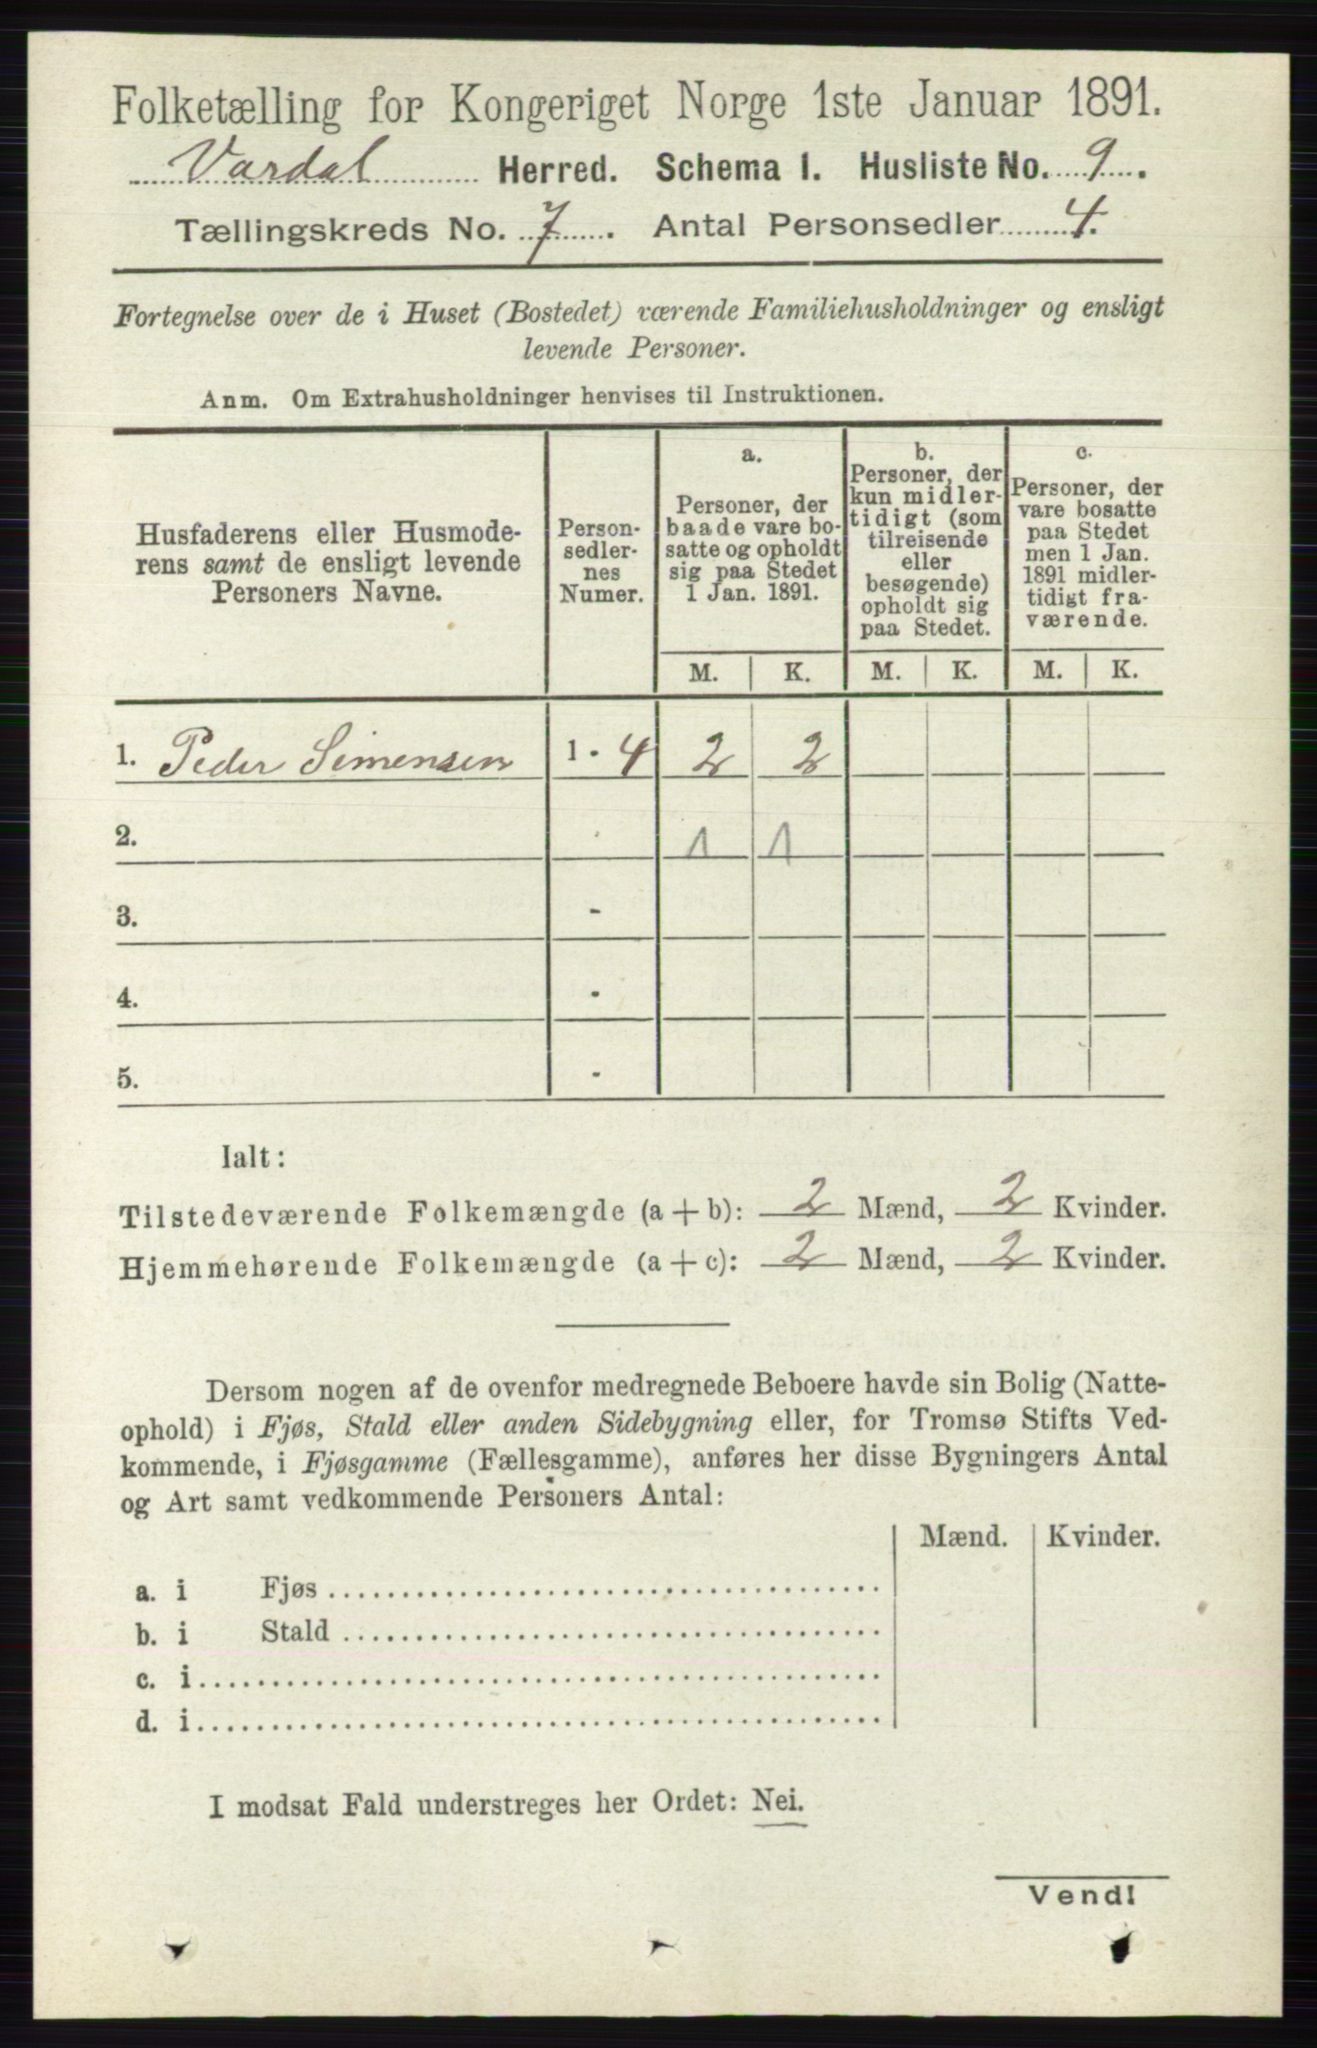 Folketælling for Kongeriget Norge 1ste Januar 1891.
Vardal Herred. Schema I. Husliste No. 9.
Tællingskreds No. 7. Antal Personsedler 4.
Fortegnelse over de i Huset (Bostedet) værende Familiehusholdninger og ensligt
levende Personer.
Anm. Om Extrahusholdninger henvises til Instruktionen.
Husfaderens eller Husmode-
rens samt de ensligt levende
Personers Navne.
Person-
sedler-
nes
Numer.
a.
Personer, der
baade vare bo-
satte og opholdt
sig paa Stedet
1 Jan. 1891.
b.
Personer, der
kun midler-
tidigt (som
tilreisende
eller
besøgende)
opholdt sig
paa Stedet.
c.
Personer, der
vare bosatte
paa Stedet
men 1 Jan.
1891 midler-
tidigt fra-
værende.
M. K. M. K. M. K.
1. Peder Simensen 1 - 4 2 2
2. - 1 1
3. -
4. -
5. -
Ialt:
Tilstedeværende Folkemængde (a + b): 2 Mænd, 2 Kvinder.
Hjemmehørende Folkemængde (a + c): 2 Mænd, 2 Kvinder.
Dersom nogen af de ovenfor medregnede Beboere havde sin Bolig (Natte-
ophold) i Fjøs, Stald eller anden Sidebygning eller, for Tromsø Stifts Ved-
kommende, i Fjøsgamme (Fællesgamme), anføres her disse Bygningers Antal
og Art samt vedkommende Personers Antal:
Mænd. Kvinder.
a. i Fjøs
b. i Stald
c. i
d. i
I modsat Fald understreges her Ordet: Nei.
Vend!